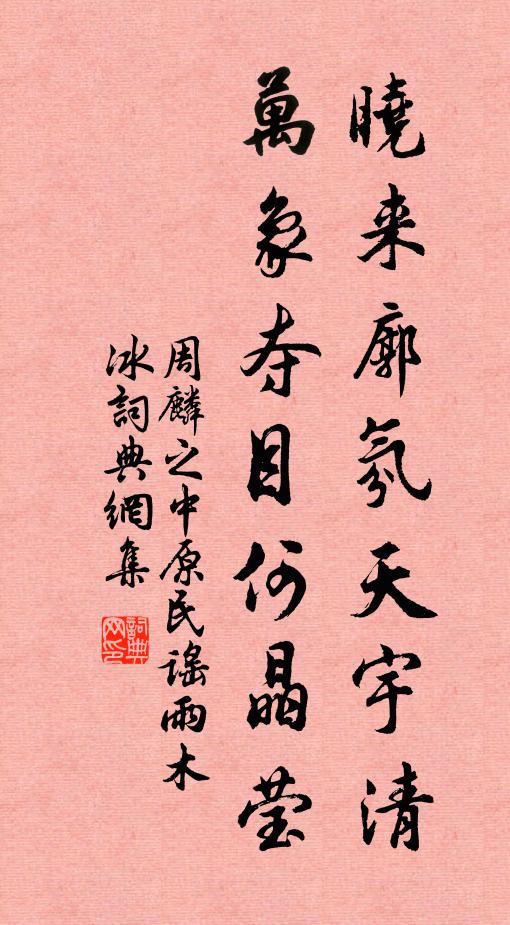 曉来廓氛天宇清
萬象夺目何晶莹
周麟之中原民謠雨木
冰詞典網集
詞典网印